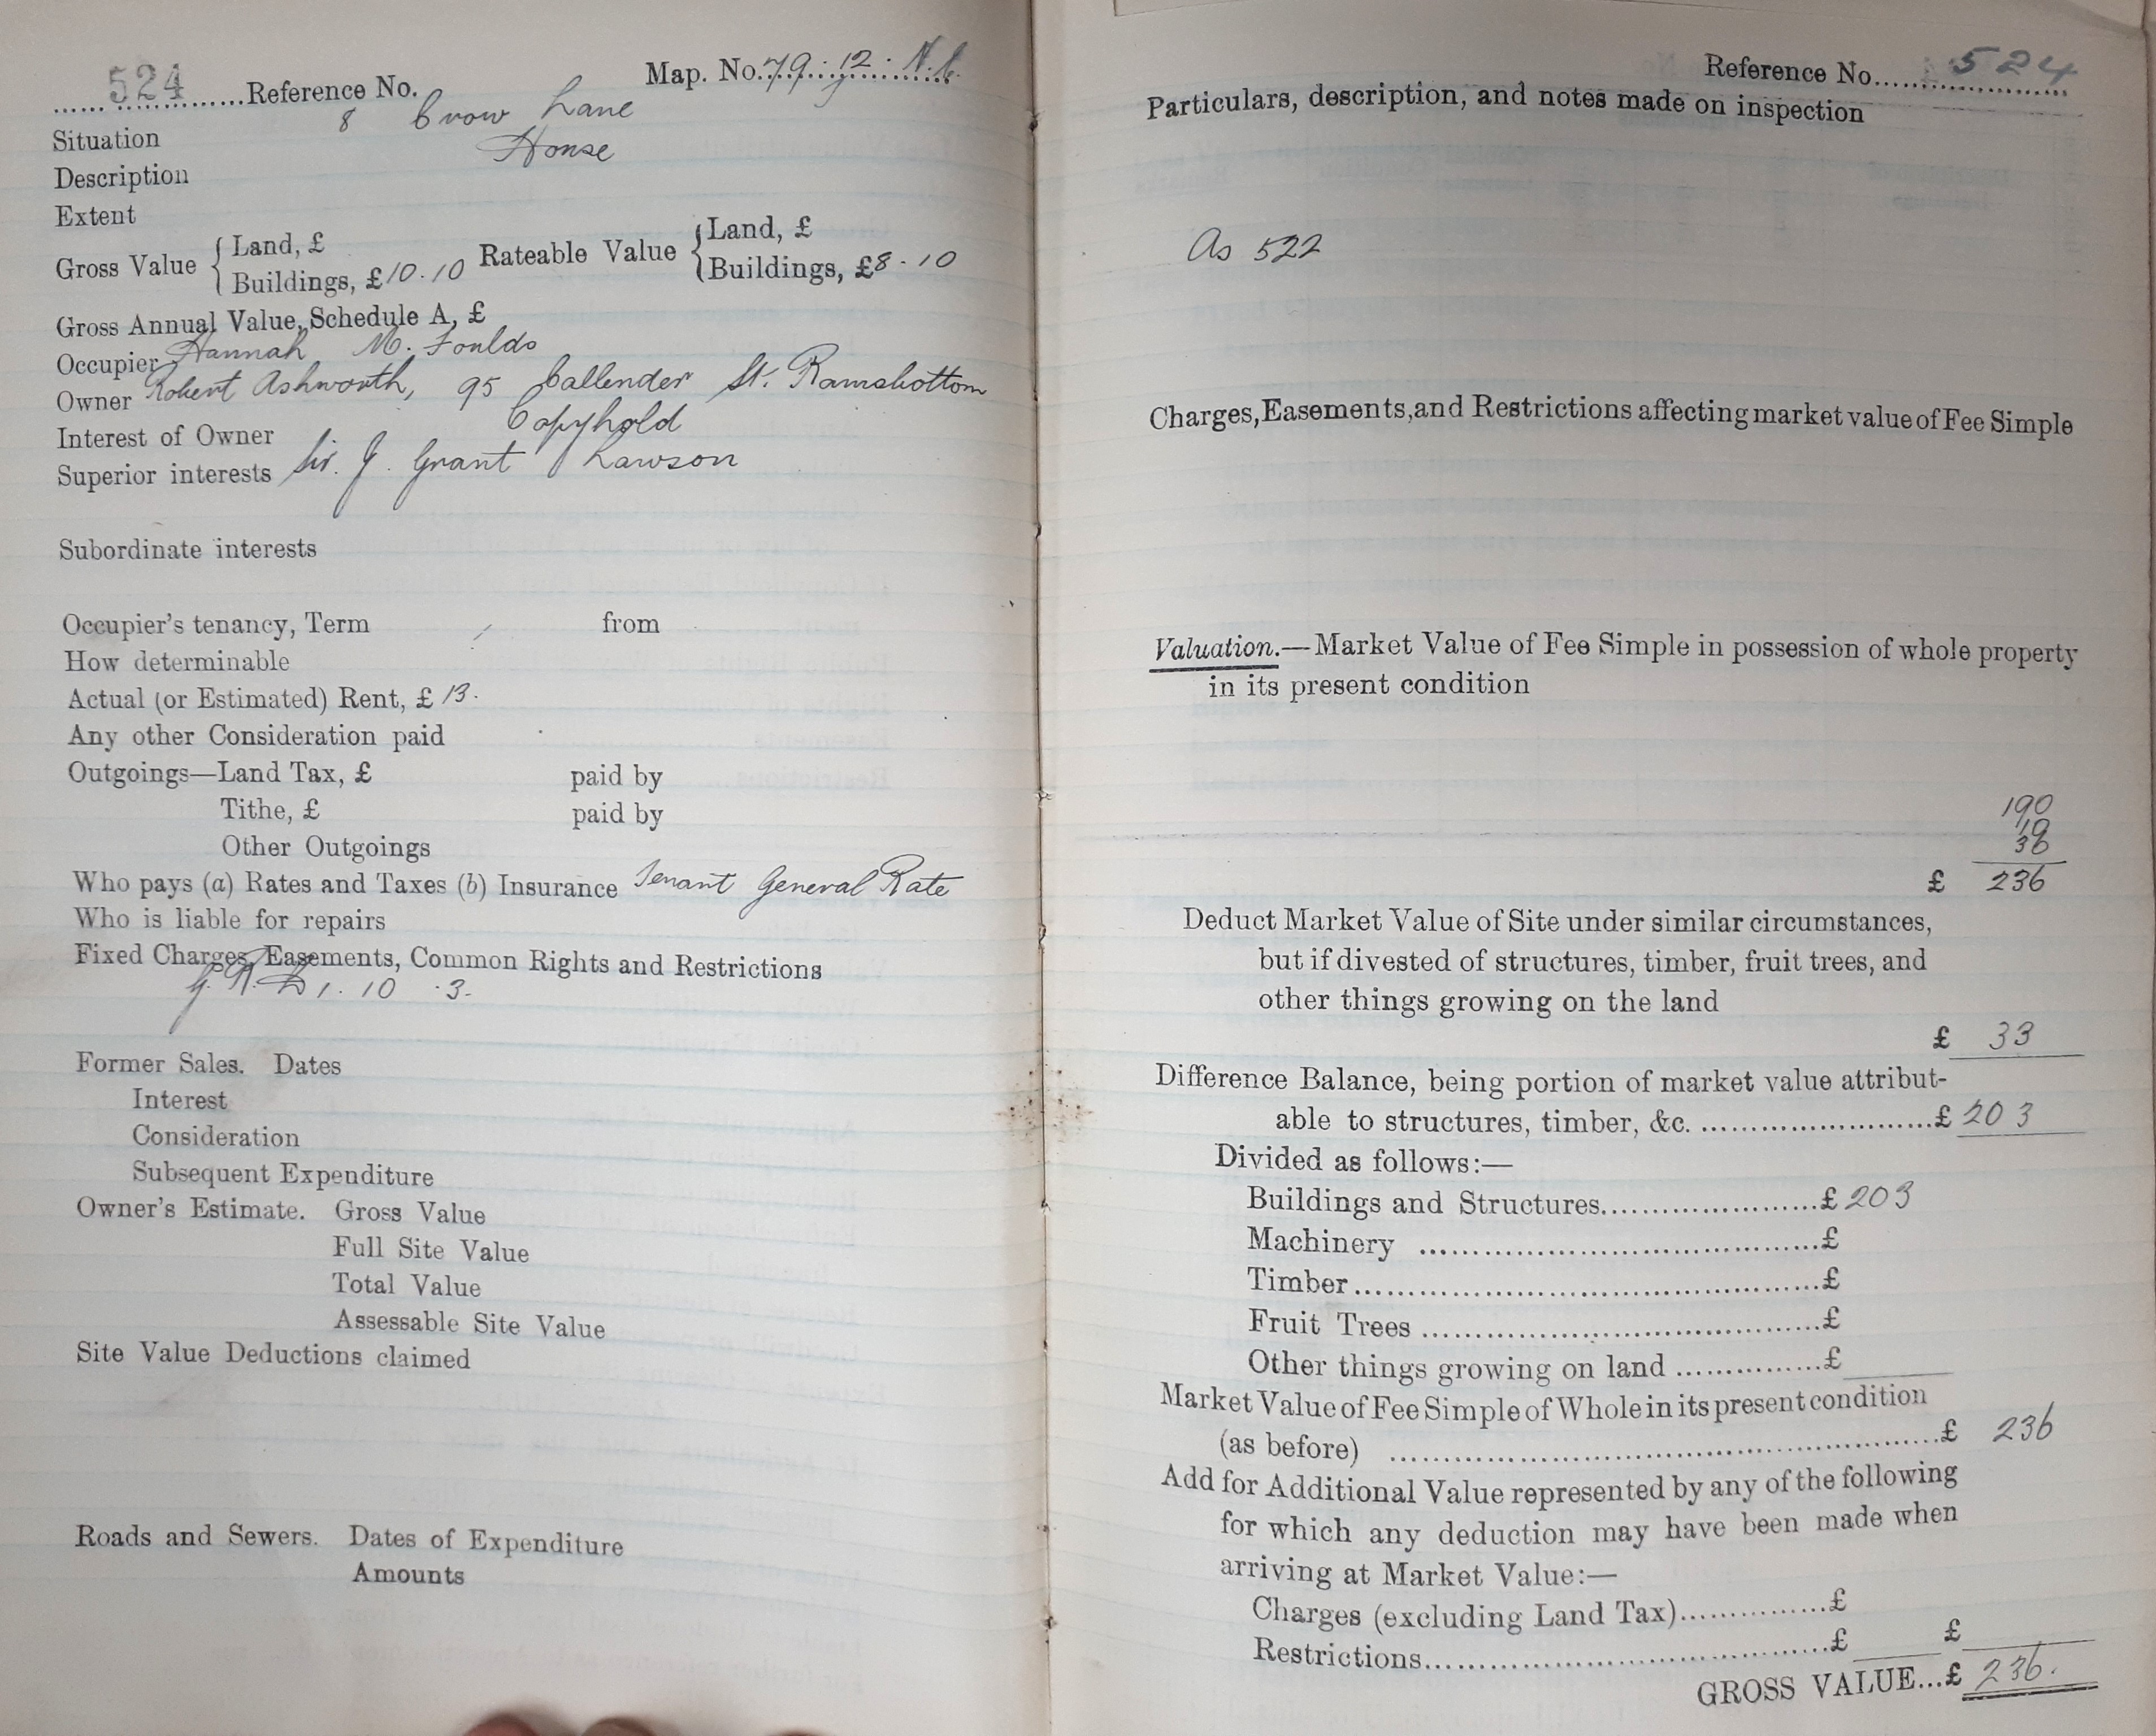 524 Reference No. Map. No. 79. 12. N.
Situation 8 Crow Lane
Description House
Extent
Gross Value { Land, £ Rateable Value { Land, £
Buildings, £10.10 Buildings, £8.10
Gross Annual Value, Schedule A, £
Occupier Hannah M. Foulds
Owner Robert Ashworth, 95 Callender St. Ramsbottom
Interest of Owner Copyhold
Superior interests Sir. J. Grant Lawson
Subordinate interests
Occupier's tenancy, Term from
How determinable
Actual (or Estimated) Rent, £ 13.
Any other Consideration paid
Outgoings—Land Tax, £ paid by
Tithe, £ paid by
Other Outgoings
Who pays (a) Rates and Taxes (b) Insurance Tenant General Rate
Who is liable for repairs
Fixed Charges, Easements, Common Rights and Restrictions
G.R. £1.10.3.
Former Sales. Dates
Interest
Consideration
Subsequent Expenditure
Owner's Estimate. Gross Value
Full Site Value
Total Value
Assessable Site Value
Site Value Deductions claimed
Roads and Sewers. Dates of Expenditure
Amounts
Reference No. 524
Particulars, description, and notes made on inspection
As 522
Charges, Easements, and Restrictions affecting market value of Fee Simple
Valuation.—Market Value of Fee Simple in possession of whole property
in its present condition
190
10
36
£ 236
Deduct Market Value of Site under similar circumstances,
but if divested of structures, timber, fruit trees, and
other things growing on the land
£ 33
Difference Balance, being portion of market value attribut-
able to structures, timber, &c. £ 203
Divided as follows:—
Buildings and Structures £ 203
Machinery £
Timber £
Fruit Trees £
Other things growing on land £
Market Value of Fee Simple of Whole in its present condition
(as before) £ 236
Add for Additional Value represented by any of the following
for which any deduction may have been made when
arriving at Market Value:—
Charges (excluding Land Tax) £
Restrictions £ £
GROSS VALUE...£ 236.